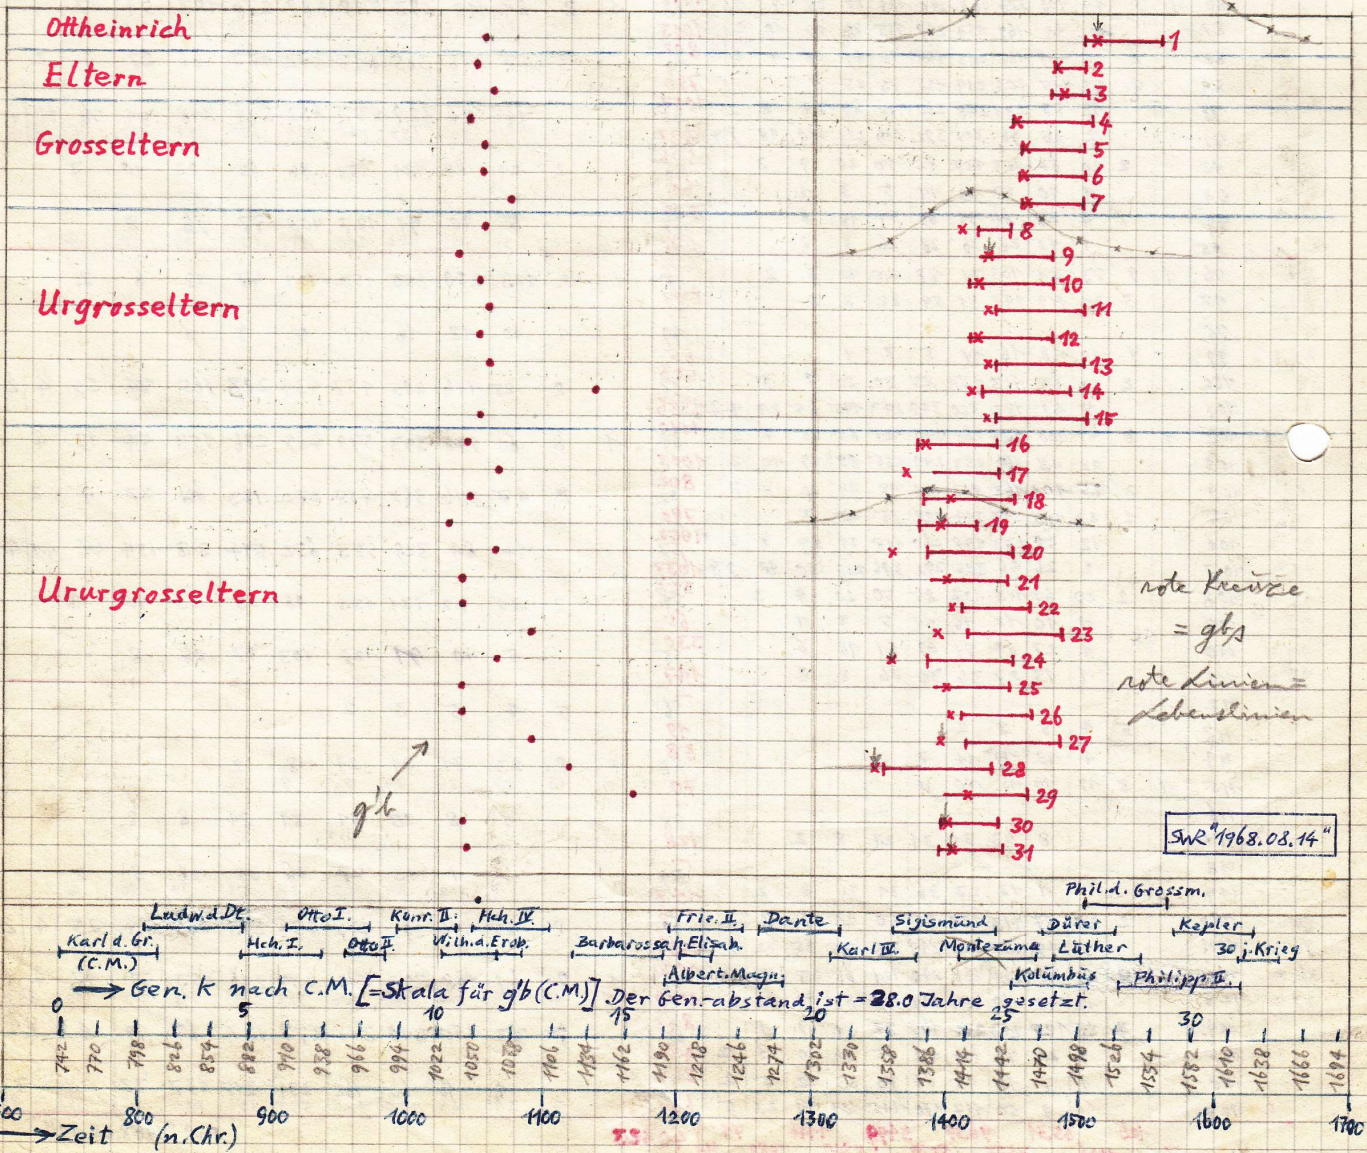 Ottheinrich
1
Eltern
2
3
Grosseltern
4
5
6
7
Urgrosseltern
8
9
10
11
12
13
14
15
Ururgrosseltern
16
17
18
19
20
21
22
23
24
25
26
27
28
29
30
31
rote Kreuze
= gbs
rote Linien =
Lebenslinien
g'b
SWR "1968.08.14"
Phil.d. Grossm.
Ludw.d.Dt. Otto I. Konr. II. Hch. IV. Frie. II. Dante Sigismund Dürer Kepler
Karl d. Gr. Hch. I. Otto II. Wilh.d.Erob. Barbarossa h.Elisab. Karl IV. Montezuma Luther 30 j. Krieg
(C.M.) Albert.Magn. Kolumbus Philipp II.
→ Gen. k nach C.M. [=Skala für g'b (C.M.)] Der Gen.-abstand ist = 28.0 Jahre gesetzt.
0 5 10 15 20 25 30
742 770 798 826 854 882 910 938 966 994 1022 1050 1078 1106 1134 1162 1190 1218 1246 1274 1302 1330 1358 1386 1414 1442 1470 1498 1526 1554 1582 1610 1638 1666 1694
00 800 900 1000 1100 1200 1300 1400 1500 1600 1700
→ Zeit (n.Chr.)